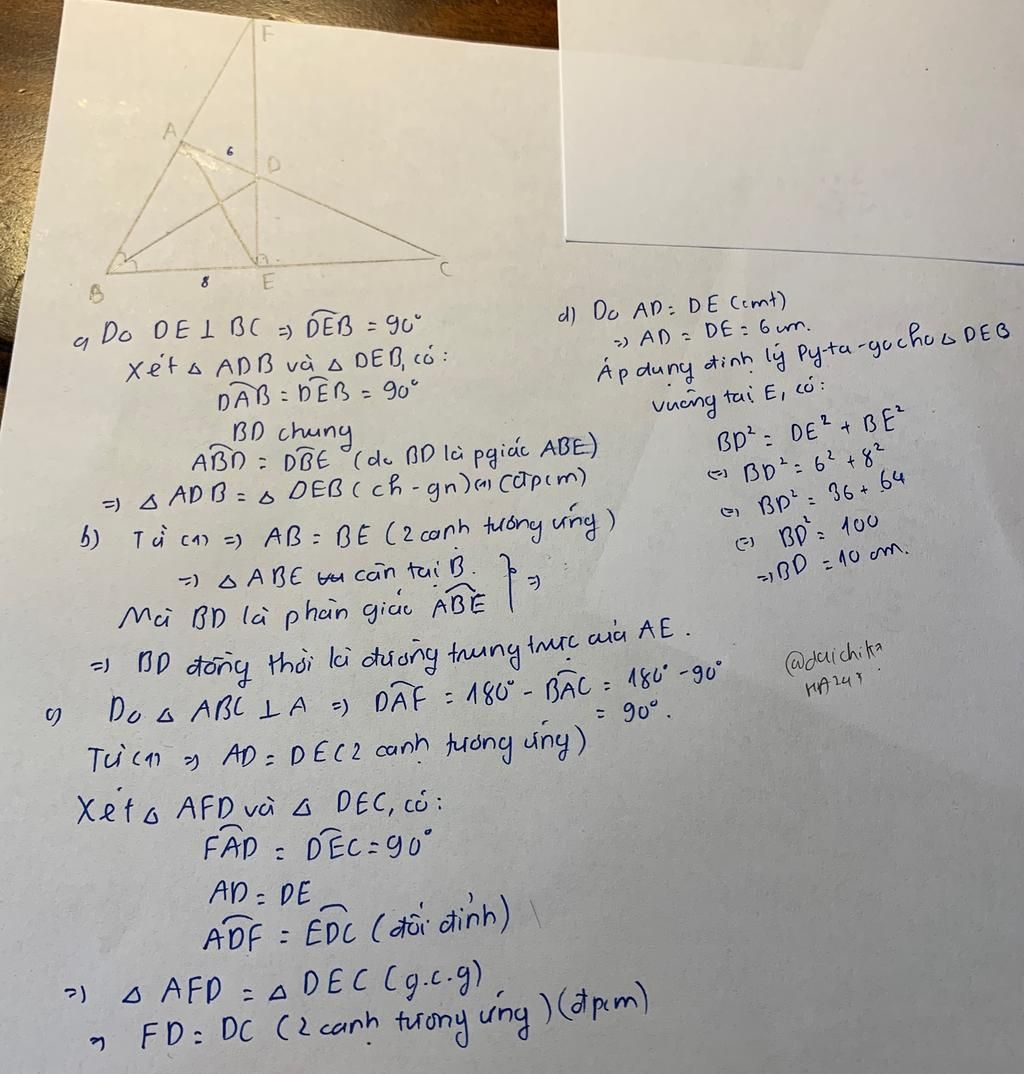 F
A
6
D
B
8
E
C
a) Do DE ⊥ BC => DEB̂ = 90°
Xét △ ADB và △ DEB, có:
DAB̂ = DEB̂ = 90°
BD chung
ABD̂ = DBÊ (do BD là pgiác ABE)
=> △ ADB = △ DEB (ch - gn) (1) (đpcm)
b) Từ (1) => AB = BE (2 cạnh tương ứng)
=> △ ABE cân tại B.
Mà BD là phân giác ABÊ } =>
=> BD đồng thời là đường trung trực của AE.
c) Do △ ABC ⊥ A => DAF̂ = 180° - BAĈ = 180° - 90°
= 90°.
Từ (1) => AD = DE (2 cạnh tương ứng)
Xét △ AFD và △ DEC, có:
FAD̂ = DEĈ = 90°
AD = DE
ADF̂ = EDĈ (đối đỉnh)
=> △ AFD = △ DEC (g.c.g)
=> FD = DC (2 cạnh tương ứng) (đpcm)
d) Do AD = DE (cmt)
=> AD = DE = 6 cm.
Áp dụng định lý Py-ta-go cho △ DEB
vuông tại E, có:
BD² = DE² + BE²
(=) BD² = 6² + 8²
(=) BD² = 36 + 64
(=) BD² = 100
=> BD = 10 cm.